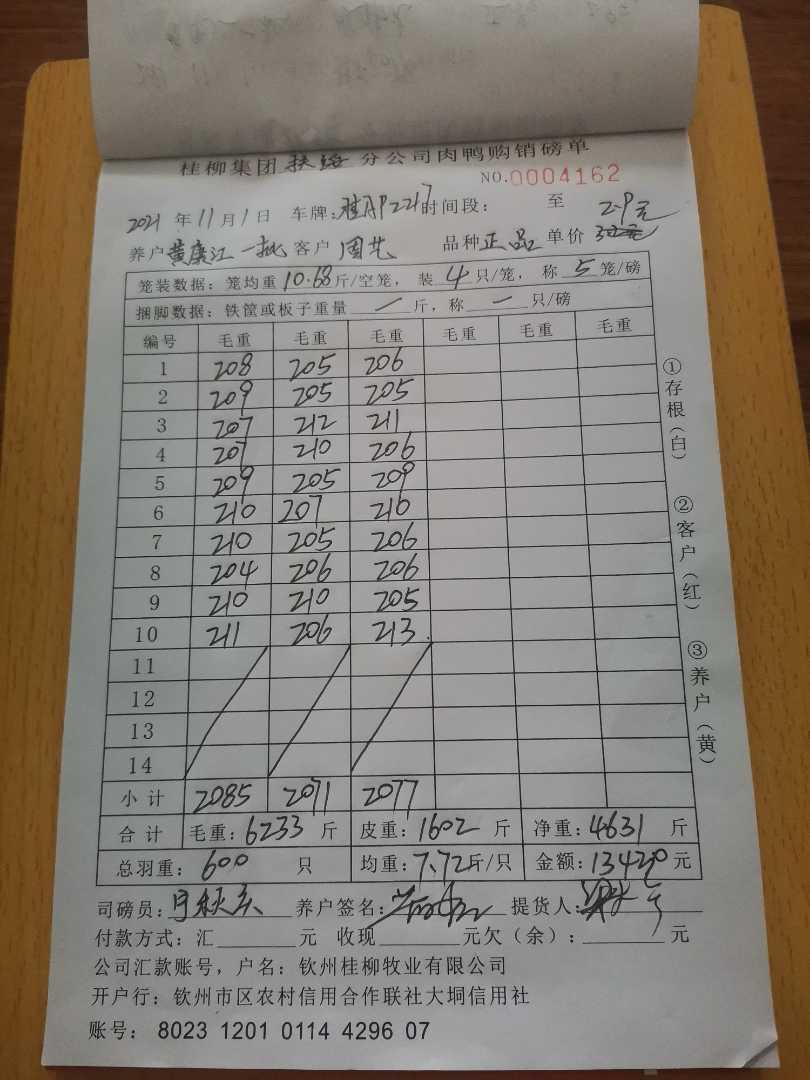 桂柳集团扶绥分公司肉鸭购销磅单
NO.0004162
2021年11月1日 车牌:桂AP2217时间段: 至
养户黄庆江一批客户周艺 品种正品 单价 2.9元
笼装数据:笼均重10.68斤/空笼,装4只/笼,称5笼/磅
捆脚数据:铁筐或板子重量一斤,称一只/磅
编号 毛重 毛重 毛重 毛重 毛重 毛重
1 208 205 206
2 209 205 205
3 207 212 211
4 207 210 206
5 209 205 209
6 210 207 210
7 210 205 206
8 204 206 206
9 210 210 205
10 211 206 213
11
12
13
14
小计 2085 2071 2077
合计 毛重:6233斤 皮重:1602斤 净重:4631斤
总羽重:600只 均重:7.72斤/只 金额:13420元
司磅员: 养户签名: 提货人:
付款方式:汇 元 收现 元欠(余): 元
公司汇款账号,户名:钦州桂柳牧业有限公司
开户行:钦州市区农村信用合作联社大垌信用社
账号: 8023 1201 0114 4296 07
①存根(白)
②客户(红)
③养户(黄)